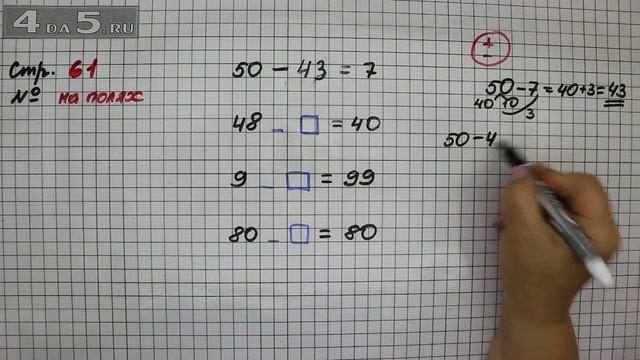 4 DA 5.RU
Стр. 61
№ на полях
50 - 43 = 7
48 _ □ = 40
9 _ □ = 99
80 _ □ = 80
+
-
50 - 7 = 40 + 3 = 43
40 10
3
50 - 4